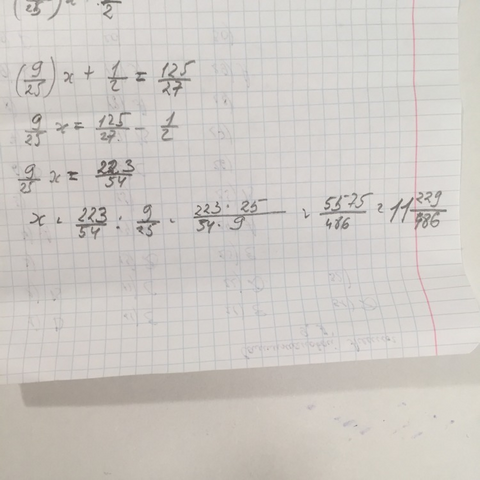 (9/25)x + 1/2 = 125/27
9/25 x = 125/27 - 1/2
9/25 x = 223/54
x = 223/54 : 9/25 = 223 · 25/54 · 9 = 5575/486 = 11 229/486